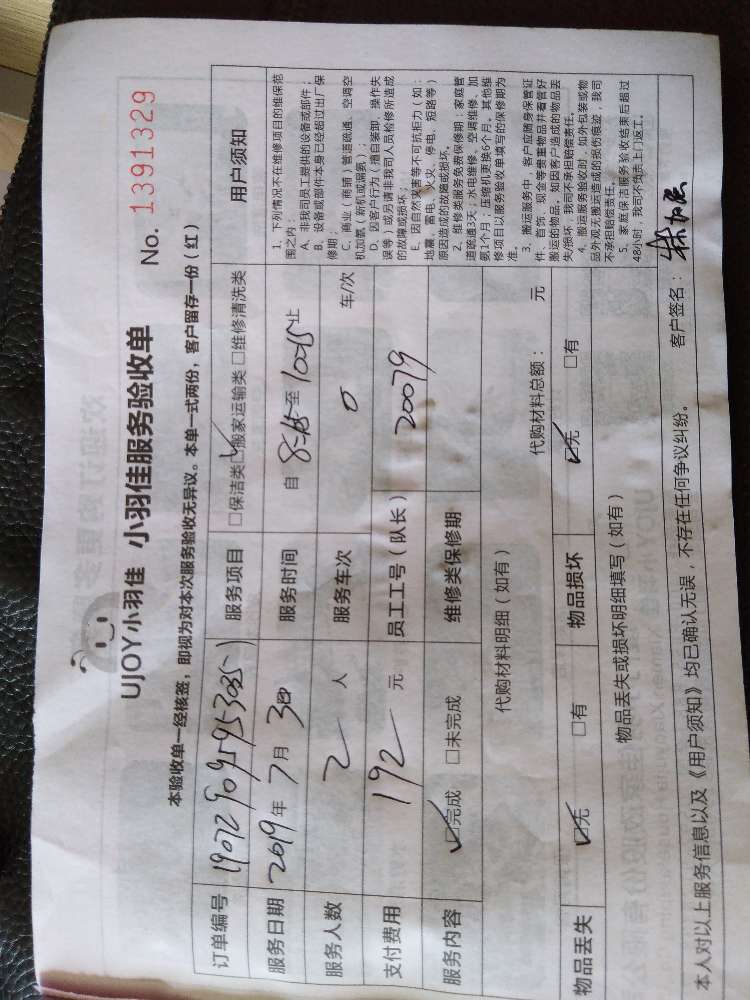 UJOY小羽佳 小羽佳服务验收单
No. 1391329
本验收单一经核签，即视为对本次服务验收无异议。本单一式两份，客户留存一份（红）
订单编号 服务项目 □保洁类 □搬家运输类 □维修清洗类 用户须知
服务日期 2019年7月30日 服务时间 自 8:15 至 10:15 止
服务人数 2 人 服务车次 0 车/次
支付费用 192 元 员工工号（队长） 20079
服务内容 ☑完成 □未完成 维修类保修期
代购材料明细（如有） 代购材料总额： 元
物品丢失 ☑无 □有 物品损坏 ☑无 □有
物品丢失或损坏明细填写（如有）
1、下列情况不在维修项目的维保范
围之内：
A、非我司员工提供的设备或部件；
B、设备或部件本身已经超过出厂保
修期；
C、商业（商铺）管道疏通、空调空
机加氨（新机或漏氨）；
D、因客户行为（擅自装卸、操作失
误等）或另请非我司人员检修所造成
的故障或损坏；
E、因自然灾害等不可抗拒力（如：
地震、雷电、火灾、停电、短路等）
原因造成的故障或损坏。
2、维修类服务免费保修期：家庭管
道疏通3天；水电维修、空调维修、加
氨1个月；压缩机更换6个月。其他维
修项目以服务验收单填写的保修期为
准。
3、搬运服务中，客户应随身保管证
件、首饰、现金等贵重物品并看管好
搬运的物品，如因客户造成的物品丢
失/损坏，我司不承担赔偿责任。
4、搬运服务验收时，如外包装或物
品外观无搬运造成的损伤痕迹，我司
不承担赔偿责任。
5、家庭保洁服务验收结束后超过
48小时，我司不负责上门返工。
本人对以上服务信息以及《用户须知》均已确认无误，不存在任何争议纠纷。 客户签名：